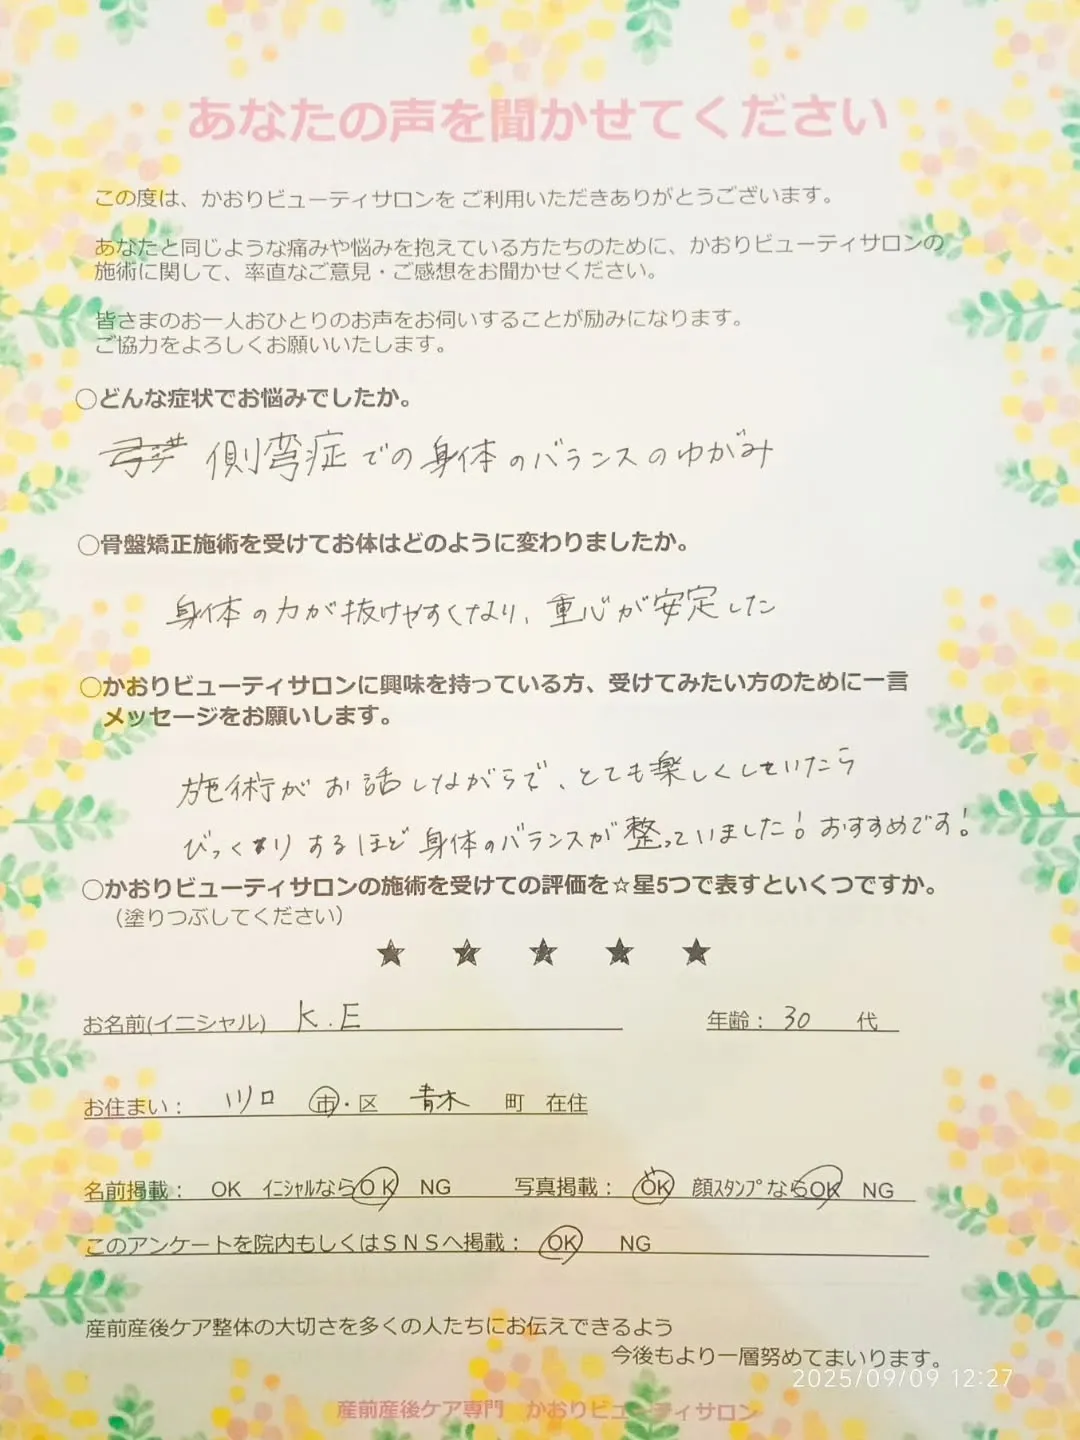 あなたの声を聞かせてください
この度は、かおりビューティサロンを ご利用いただきありがとうございます。
あなたと同じような痛みや悩みを抱えている方たちのために、かおりビューティサロンの
施術に関して、率直なご意見・ご感想をお聞かせください。
皆さまのお一人おひとりのお声をお伺いすることが励みになります。
ご協力をよろしくお願いいたします。
○どんな症状でお悩みでしたか。
側弯症での身体のバランスのゆがみ
○骨盤矯正施術を受けてお体はどのように変わりましたか。
身体の力が抜けやすくなり、重心が安定した
○かおりビューティサロンに興味を持っている方、受けてみたい方のために一言
メッセージをお願いします。
施術がお話しながらで、とても楽しくしていたら
びっくりするほど身体のバランスが整っていました！おすすめです！
○かおりビューティサロンの施術を受けての評価を☆星5つで表すといくつですか。
（塗りつぶしてください）
★ ★ ★ ★ ★
お名前(イニシャル) K.E 年齢： 30 代
お住まい： 川口 市・区 青木 町 在住
名前掲載： OK ｲﾆｼｬﾙならOK NG 写真掲載： OK 顔ｽﾀﾝﾌﾟならOK NG
このアンケートを院内もしくはＳＮＳへ掲載： OK NG
産前産後ケア整体の大切さを多くの人たちにお伝えできるよう
今後もより一層努めてまいります。
2025/09/09 12:27
産前産後ケア専門 かおりビューティサロン